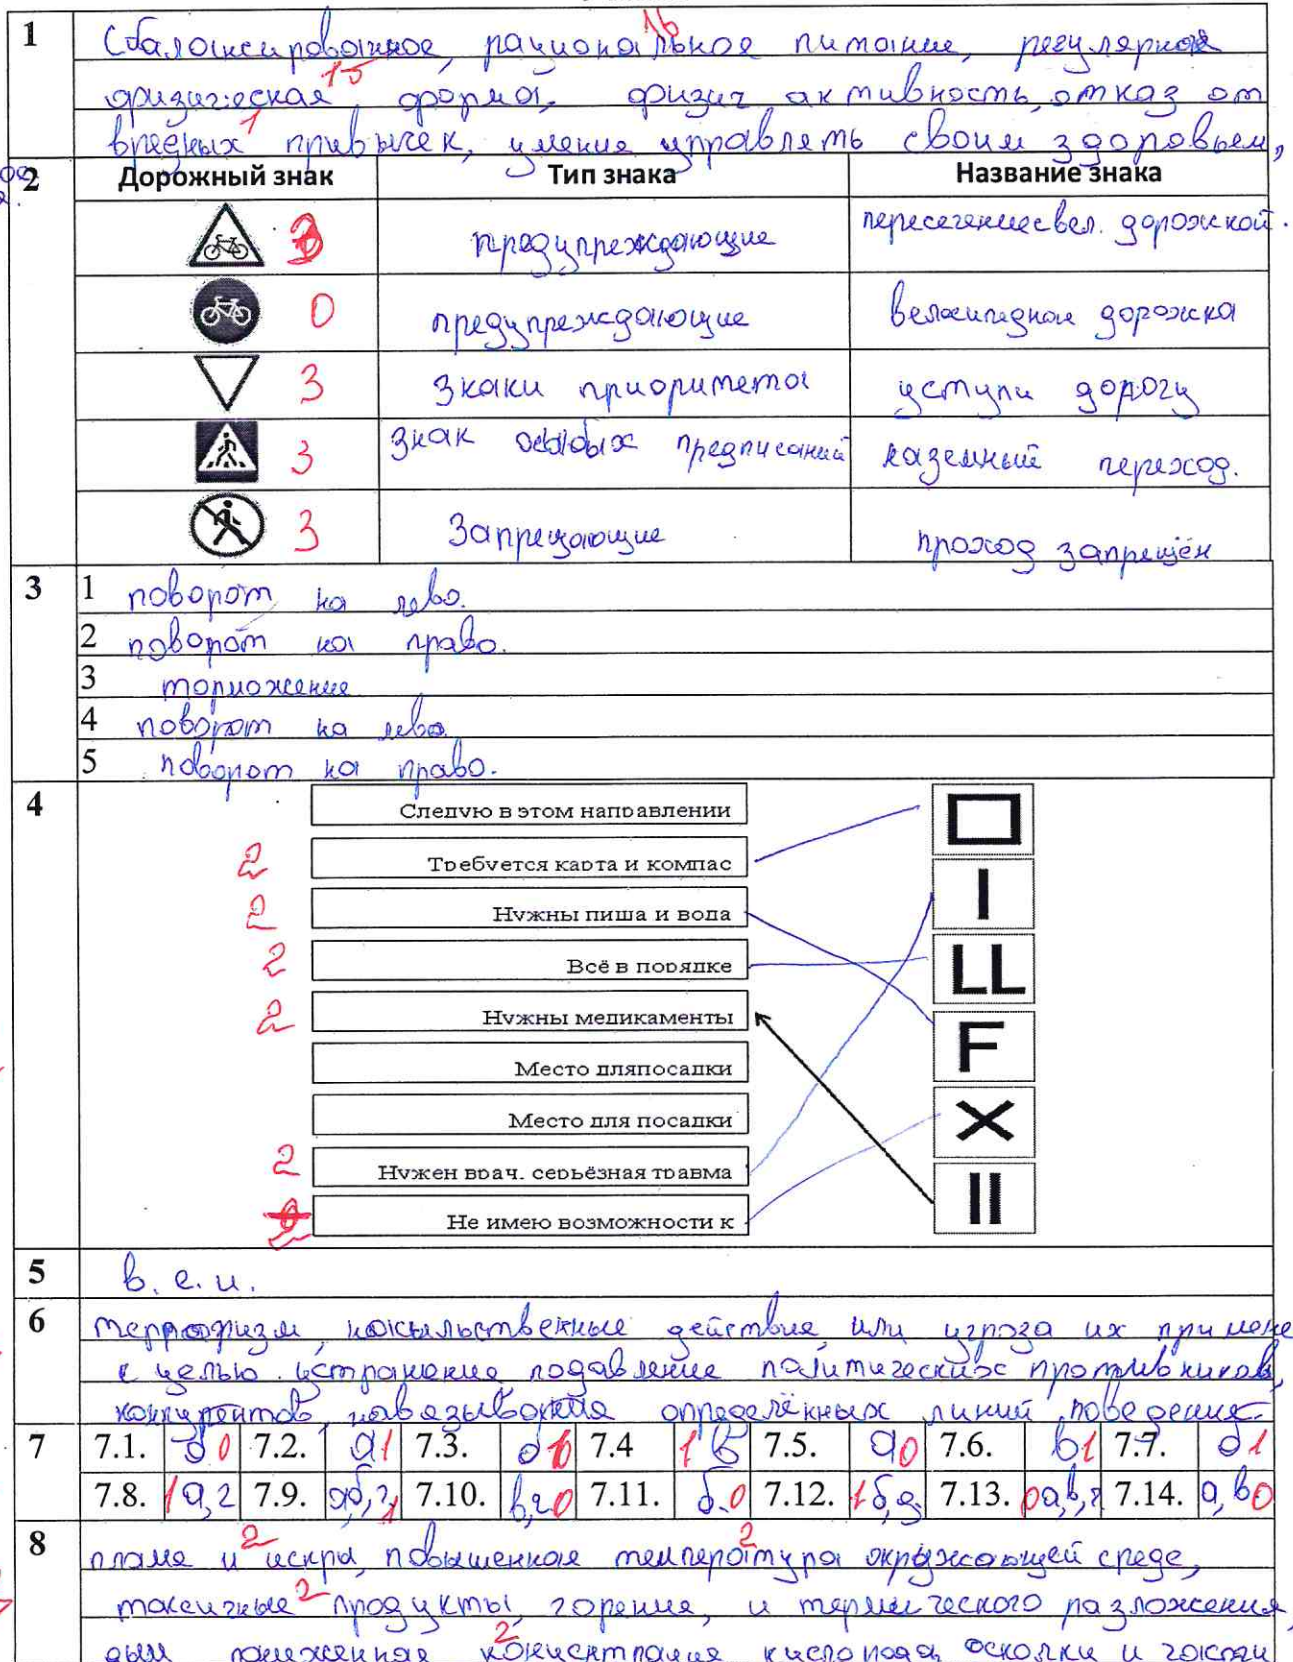 1 Сбалонсированное, рациональное питание, регулярная
1б
физическая форма, физич активность, отказ от
1б
вредных привычек, умение управлять своим здоровьем,
1
2 Дорожный знак Тип знака Название знака
3 предупреждающие пересечение с вел. дорожкой.
0 предупреждающие велосипедная дорожка
3 знаки приоритета уступи дорогу
3 знак особых предписаний наземный переход.
3 Запрещающие проход запрещён
3 1 поворот на лево.
2 поворот на право.
3 торможение
4 поворот на лево
5 поворот на право.
4 Следую в этом направлении
2 Требуется карта и компас
I
2 Нужны пища и вода
2 Всё в порядке LL
2 Нужны медикаменты F
Место дляпосадки
Место для посадки X
2 Нужен врач. серьёзная травма II
Не имею возможности к
5 в. е. и.
6 терроризм, насильственные действия или угроза их примене
с целью устранение подавление политических противников,
конкурентов, навязывания определённых линий поведения.
7 7.1. б 0 7.2. а 1 7.3. б 7.4 1 в 7.5. а 0 7.6. в 1 7.7. б 1
7.8. 1 а, г 7.9. аб, г, 1 7.10. в, г 0 7.11. б. 0 7.12. 1 б, д 7.13. 0 а, в, г 7.14. а, в 0
8 пламя и искры, повышенная температура окружающей среде,
2 2
токсичные продукты, горения, и термического разложения,
2
дым пониженная концентрация кислорода, осколки и части
2